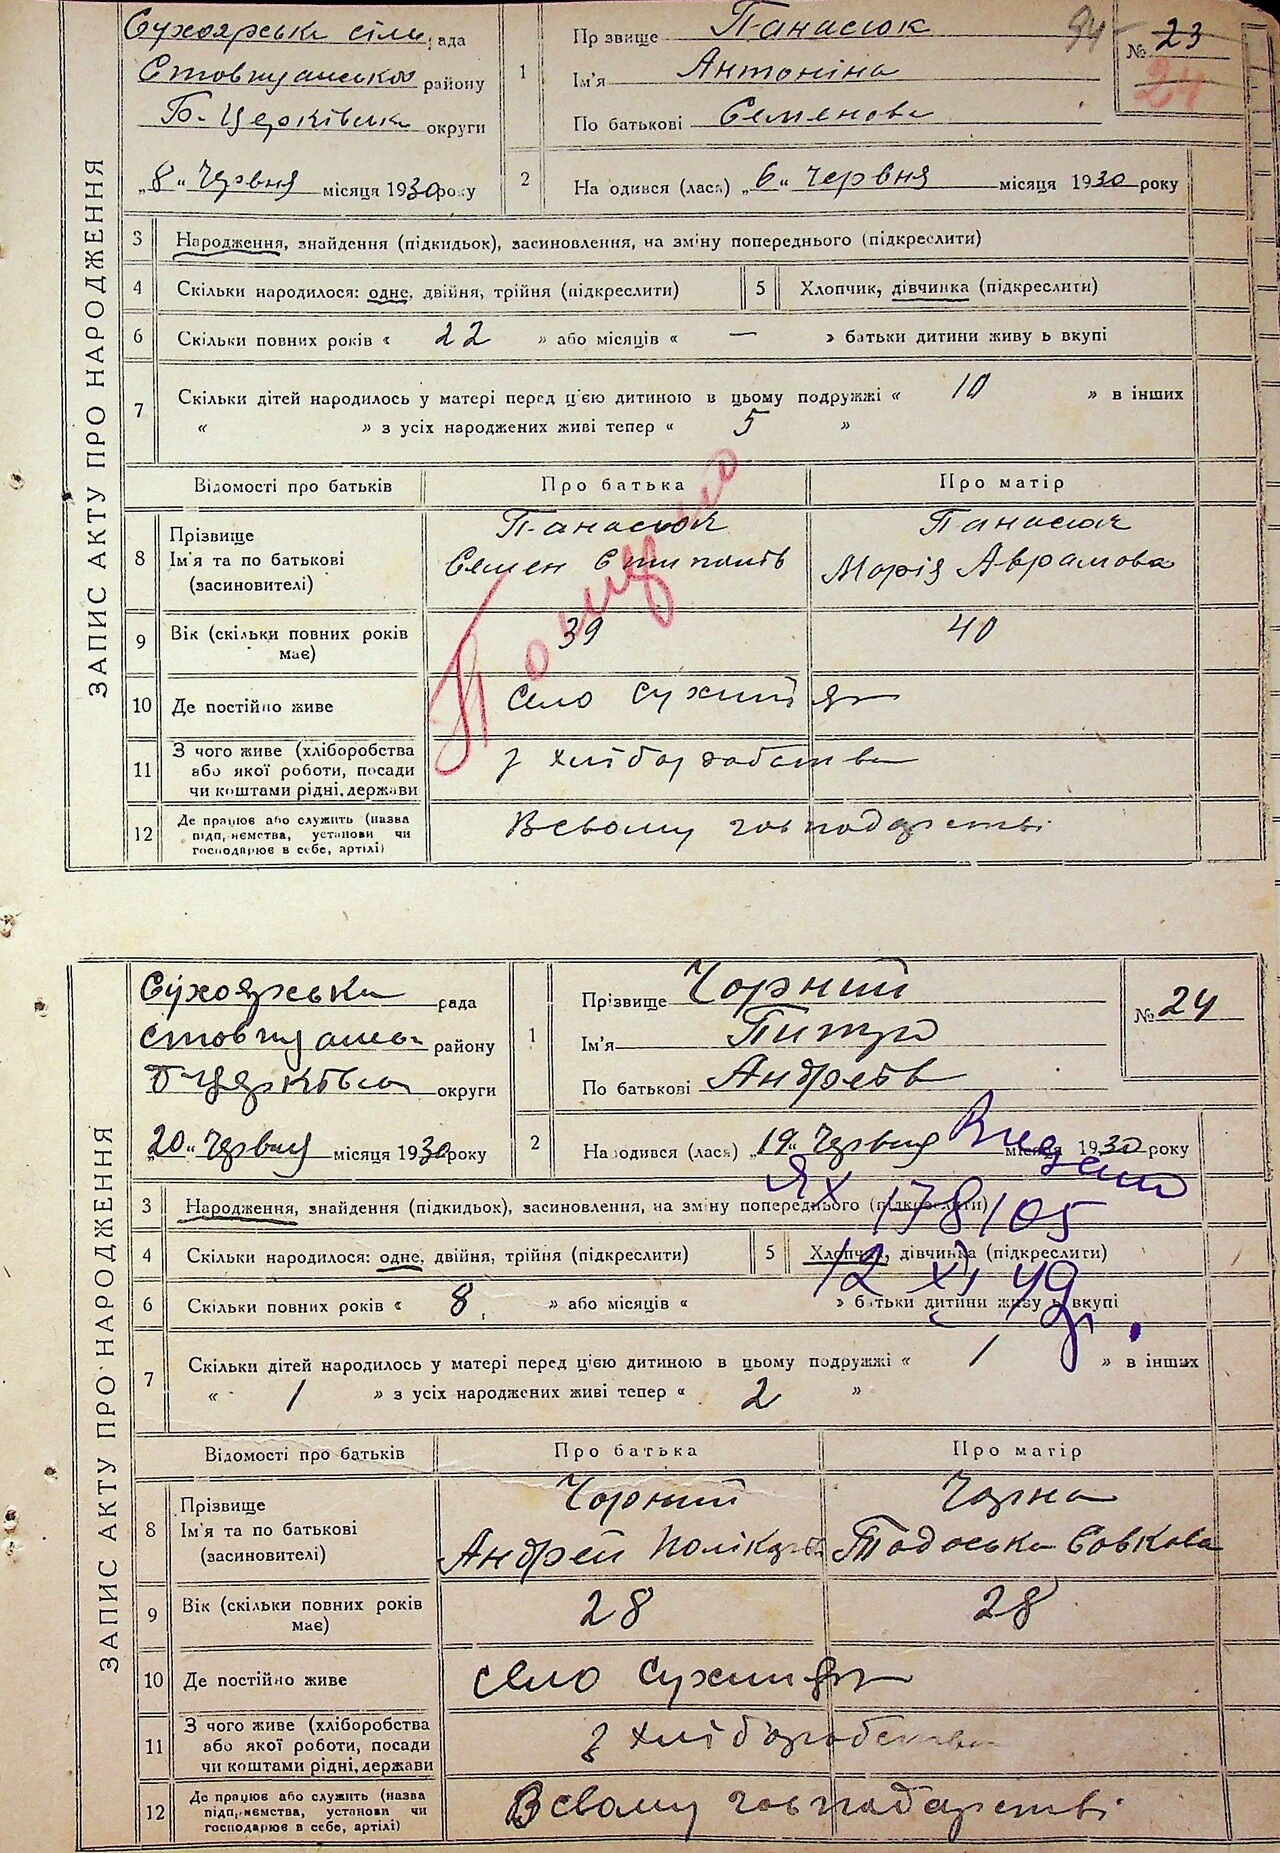 ЗАПИС АКТУ ПРО НАРОДЖЕННЯ
Сухоярська сіль рада
Ставищанської району
Б-Церківська округи
„8“ Червня місяця 1930 року
1
Прізвище Панасюк
Ім'я Антоніна
По батькові Семенова
94
№ 23
24
2
На одився (лася) „6“ Червня місяця 1930 року
3 Народження, знайдення (підкидьок), засиновлення, на зміну попереднього (підкреслити)
4 Скільки народилося: одне, двійня, трійня (підкреслити)
5 Хлопчик, дівчинка (підкреслити)
6 Скільки повних років « 22 » або місяців « — » батьки дитини живу ь вкупі
7 Скільки дітей народилось у матері перед цією дитиною в цьому подружжі « 10 » в інших
« » з усіх народжених живі тепер « 5 »
Відомості про батьків Про батька Про матір
8 Прізвище Панасюк Панасюк
Ім'я та по батькові Семен Марія Аврамова
(засиновителі)
9 Вік (скільки повних років 39 40
має)
10 Де постійно живе Село Сухий яр
11 З чого живе (хліборобства з хліборобства
або якої роботи, посади
чи коштами рідні, держави
12 Де працює або служить (назва В свому господарстві
підприємства, установи чи
господарює в себе, артілі)
ЗАПИС АКТУ ПРО НАРОДЖЕННЯ
Сухоярська рада
району
Б-Церківська округи
„20“ Червня місяця 1930 року
1
Прізвище Чорний
Ім'я Питро
По батькові Андреїв
№ 24
2
На одився (лася) „19“ Червня місяця 1930 року
Видано
ЯХ 178105
12 XI 49р.
3 Народження, знайдення (підкидьок), засиновлення, на зміну попереднього (підкреслити)
4 Скільки народилося: одне, двійня, трійня (підкреслити)
5 Хлопчик, дівчинка (підкреслити)
6 Скільки повних років « 8 » або місяців « » батьки дитини живу ь вкупі
7 Скільки дітей народилось у матері перед цією дитиною в цьому подружжі « 1 » в інших
« 1 » з усіх народжених живі тепер « 2 »
Відомості про батьків Про батька Про матір
8 Прізвище Чорний Чорна
Ім'я та по батькові Андрей Тодоська Совкова
(засиновителі)
9 Вік (скільки повних років 28 28
має)
10 Де постійно живе село Сухий яр
11 З чого живе (хліборобства з хліборобства
або якої роботи, посади
чи коштами рідні, держави
12 Де працює або служить (назва В свому господарстві
підприємства, установи чи
господарює в себе, артілі)